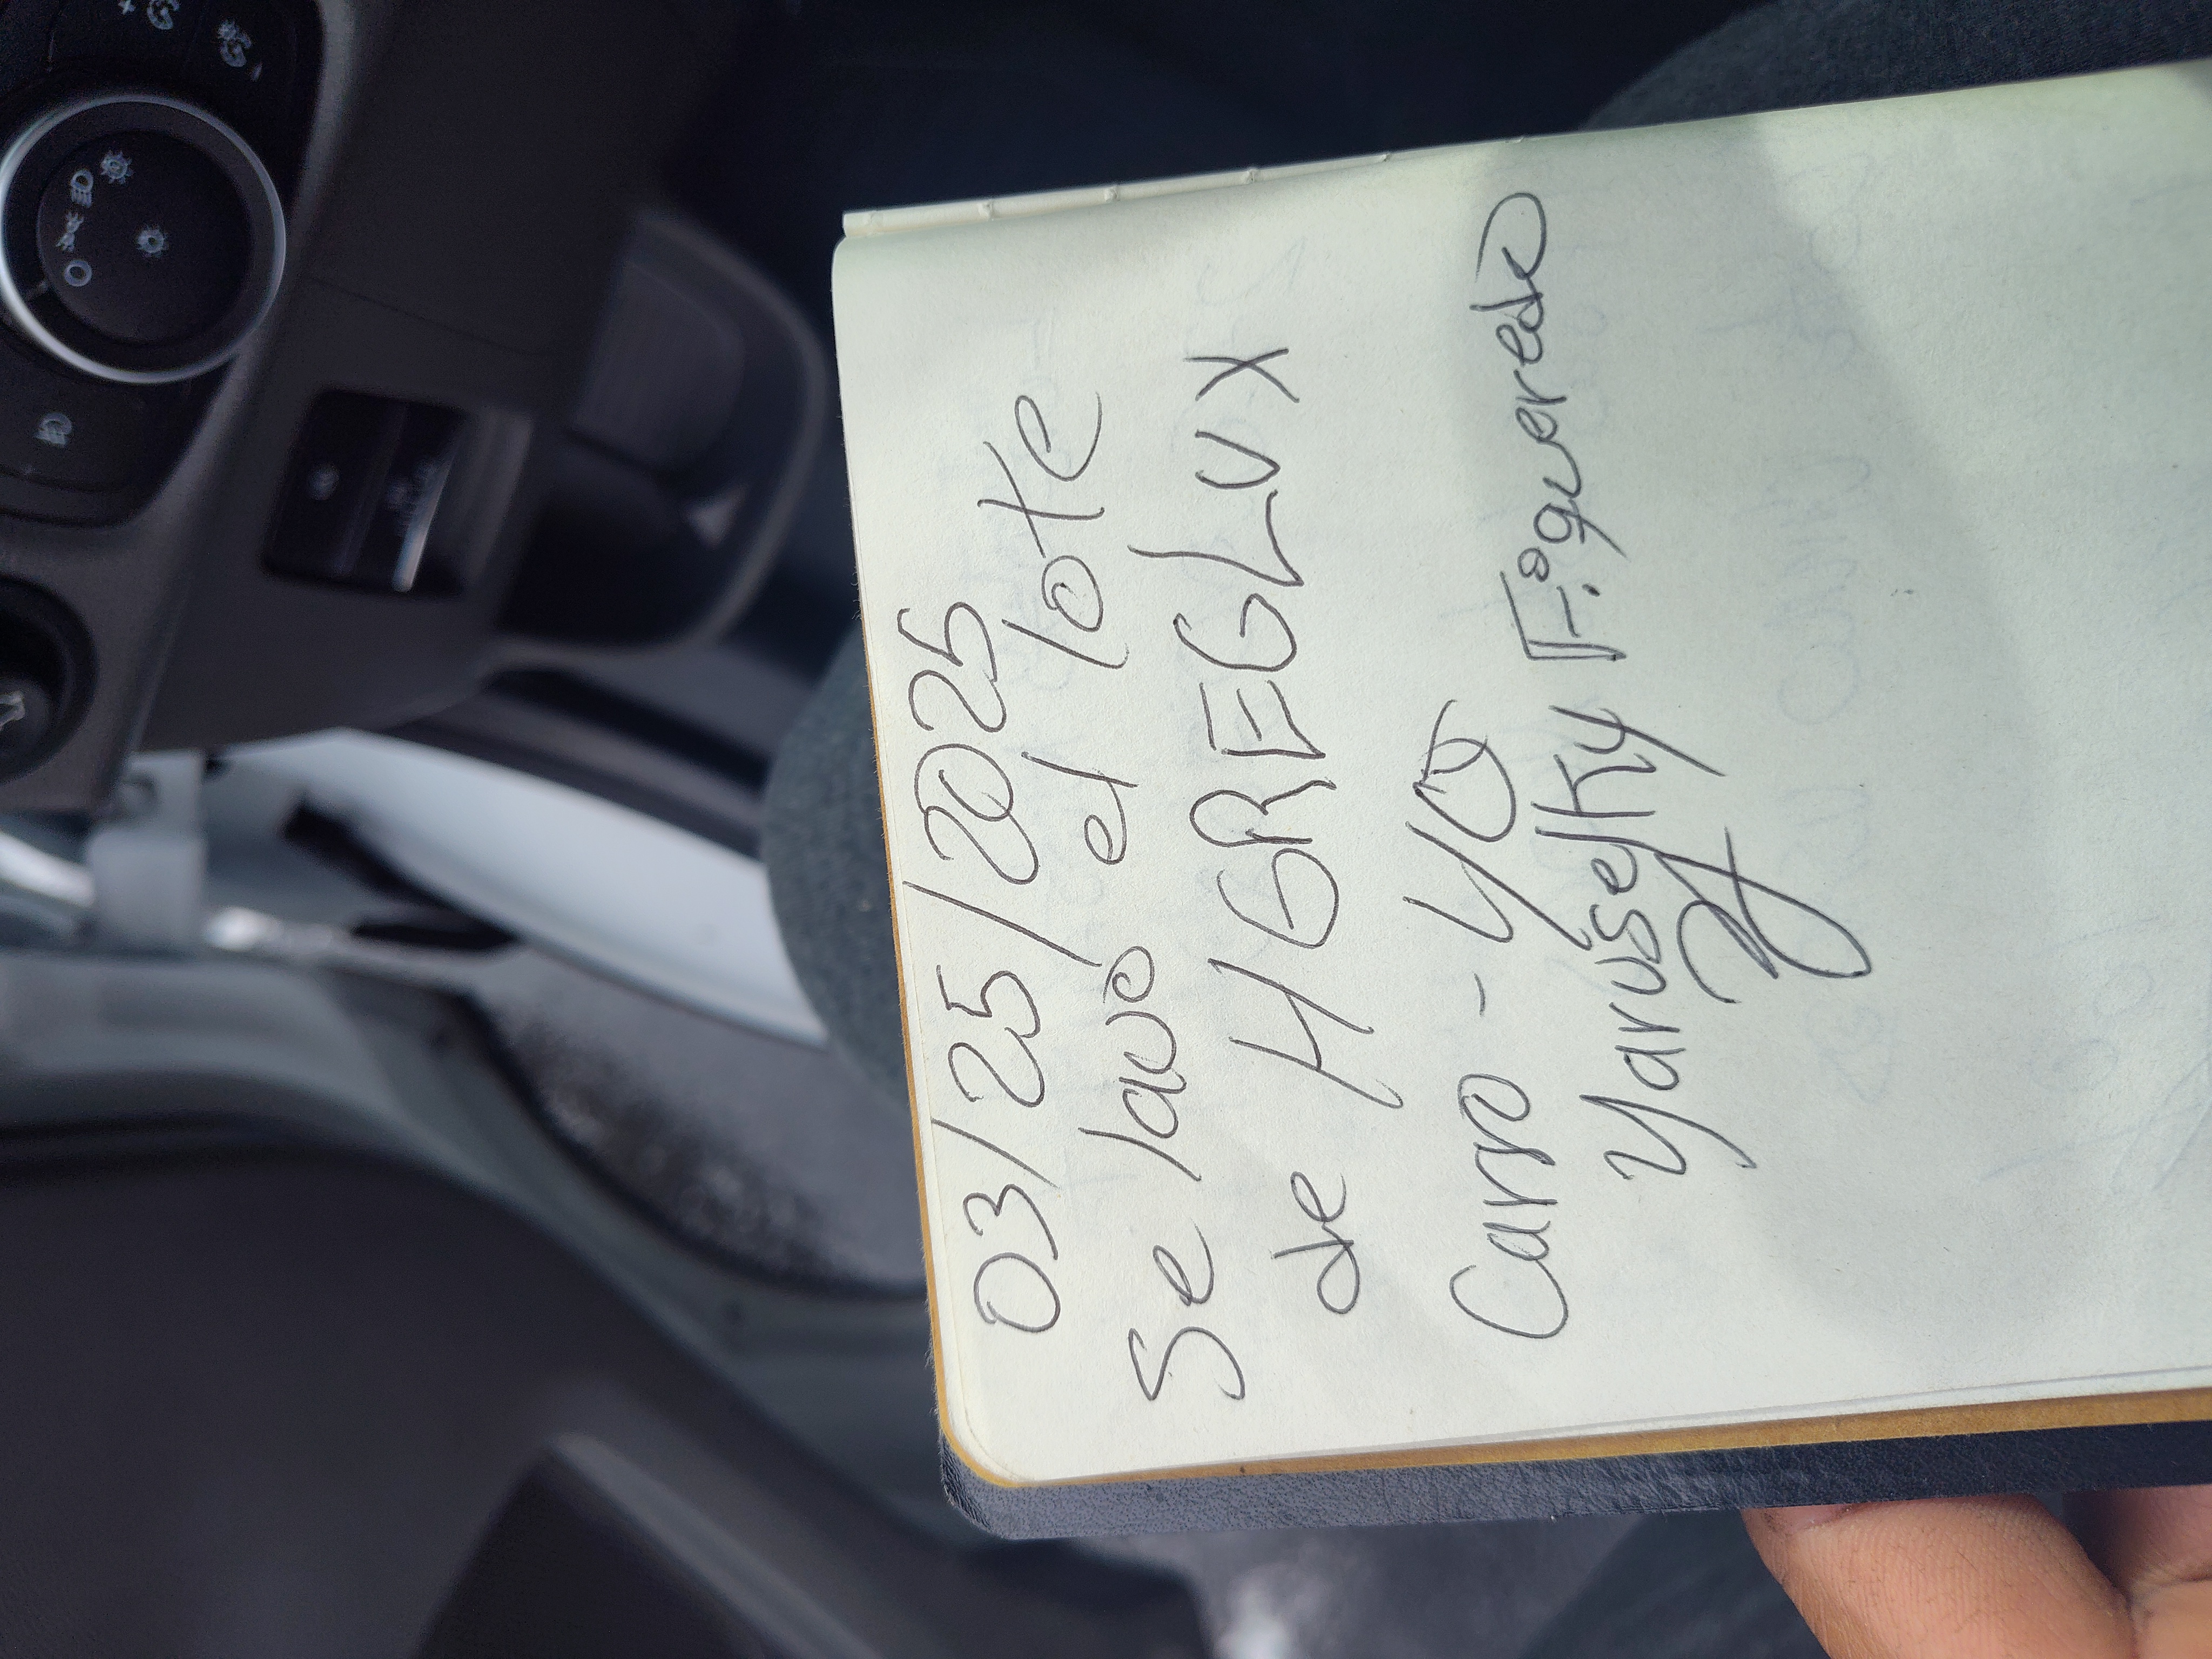 03/25/2025
Se lavo el lote
de HGREGLUX
Carro - 40
Yaruselky Figueredo